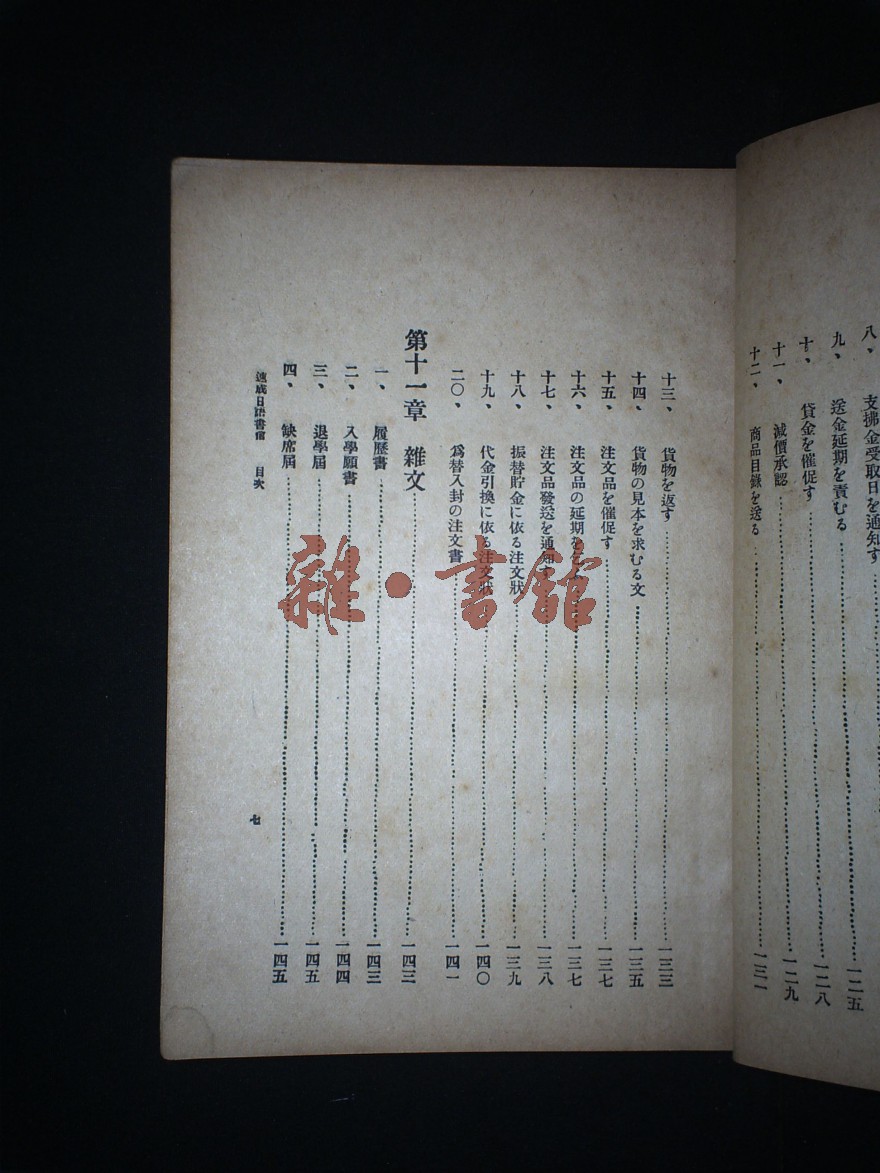 八、支拂金受取日を通知す……一二五
九、送金延期を責むる……
十、貸金を催促す……一二八
十一、減價承認……一二九
十二、商品目錄を送る……一三一
十三、貨物を返す……一三三
十四、貨物の見本を求むる文……一三五
十五、注文品を催促す……一三七
十六、注文品の延期を……一三七
十七、注文品發送を通知す……一三八
十八、振替貯金に依る注文狀……一三九
十九、代金引換に依る注文狀……一四〇
二〇、爲替入封の注文書……一四一
第十一章 雜文……一四三
一、履歷書……一四三
二、入學願書……一四四
三、退學屆……一四五
四、缺席屆……一四五
速成日語書信 目次
七
雜·書館